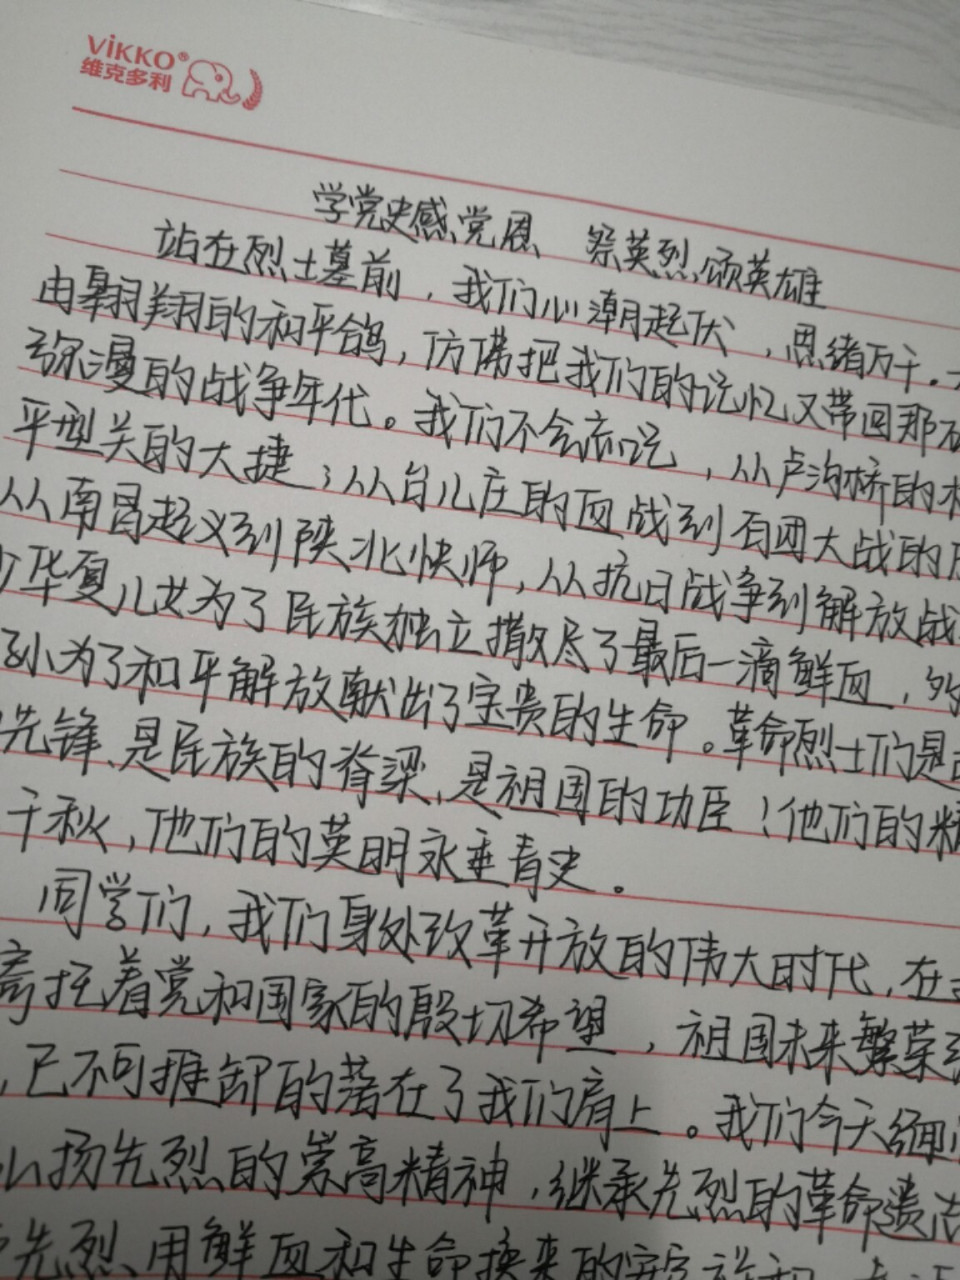 ViKKO®
维克多利
学党史感党恩 祭英烈颂英雄
站在烈士墓前，我们心潮起伏，思绪万千。
由翱翔的和平鸽，仿佛把我们的记忆又带回那
弥漫的战争年代。我们不会忘记，从卢沟桥的
平型关的大捷；从台儿庄的血战到百团大战的
从南昌起义到陕北快师，从抗日战争到解放战
少华夏儿女为了民族独立撒尽了最后一滴鲜血，
为了和平解放献出了宝贵的生命。革命烈士们是
先锋、是民族的脊梁，是祖国的功臣！他们的精
千秋，他们的英明永垂青史。
同学们，我们身处改革开放的伟大时代，在
寄托着党和国家的殷切希望，祖国未来繁荣
，已不可推卸的落在了我们肩上。我们今天缅
扬先烈的崇高精神，继承先烈的革命遗志
先烈用鲜血和生命换来的